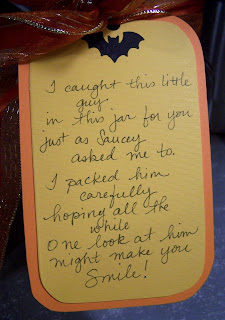 I caught this little
guy
in this jar for you
just as Saucey
asked me to.
I packed him
carefully
hoping all the
while
One look at him
might make you
Smile!